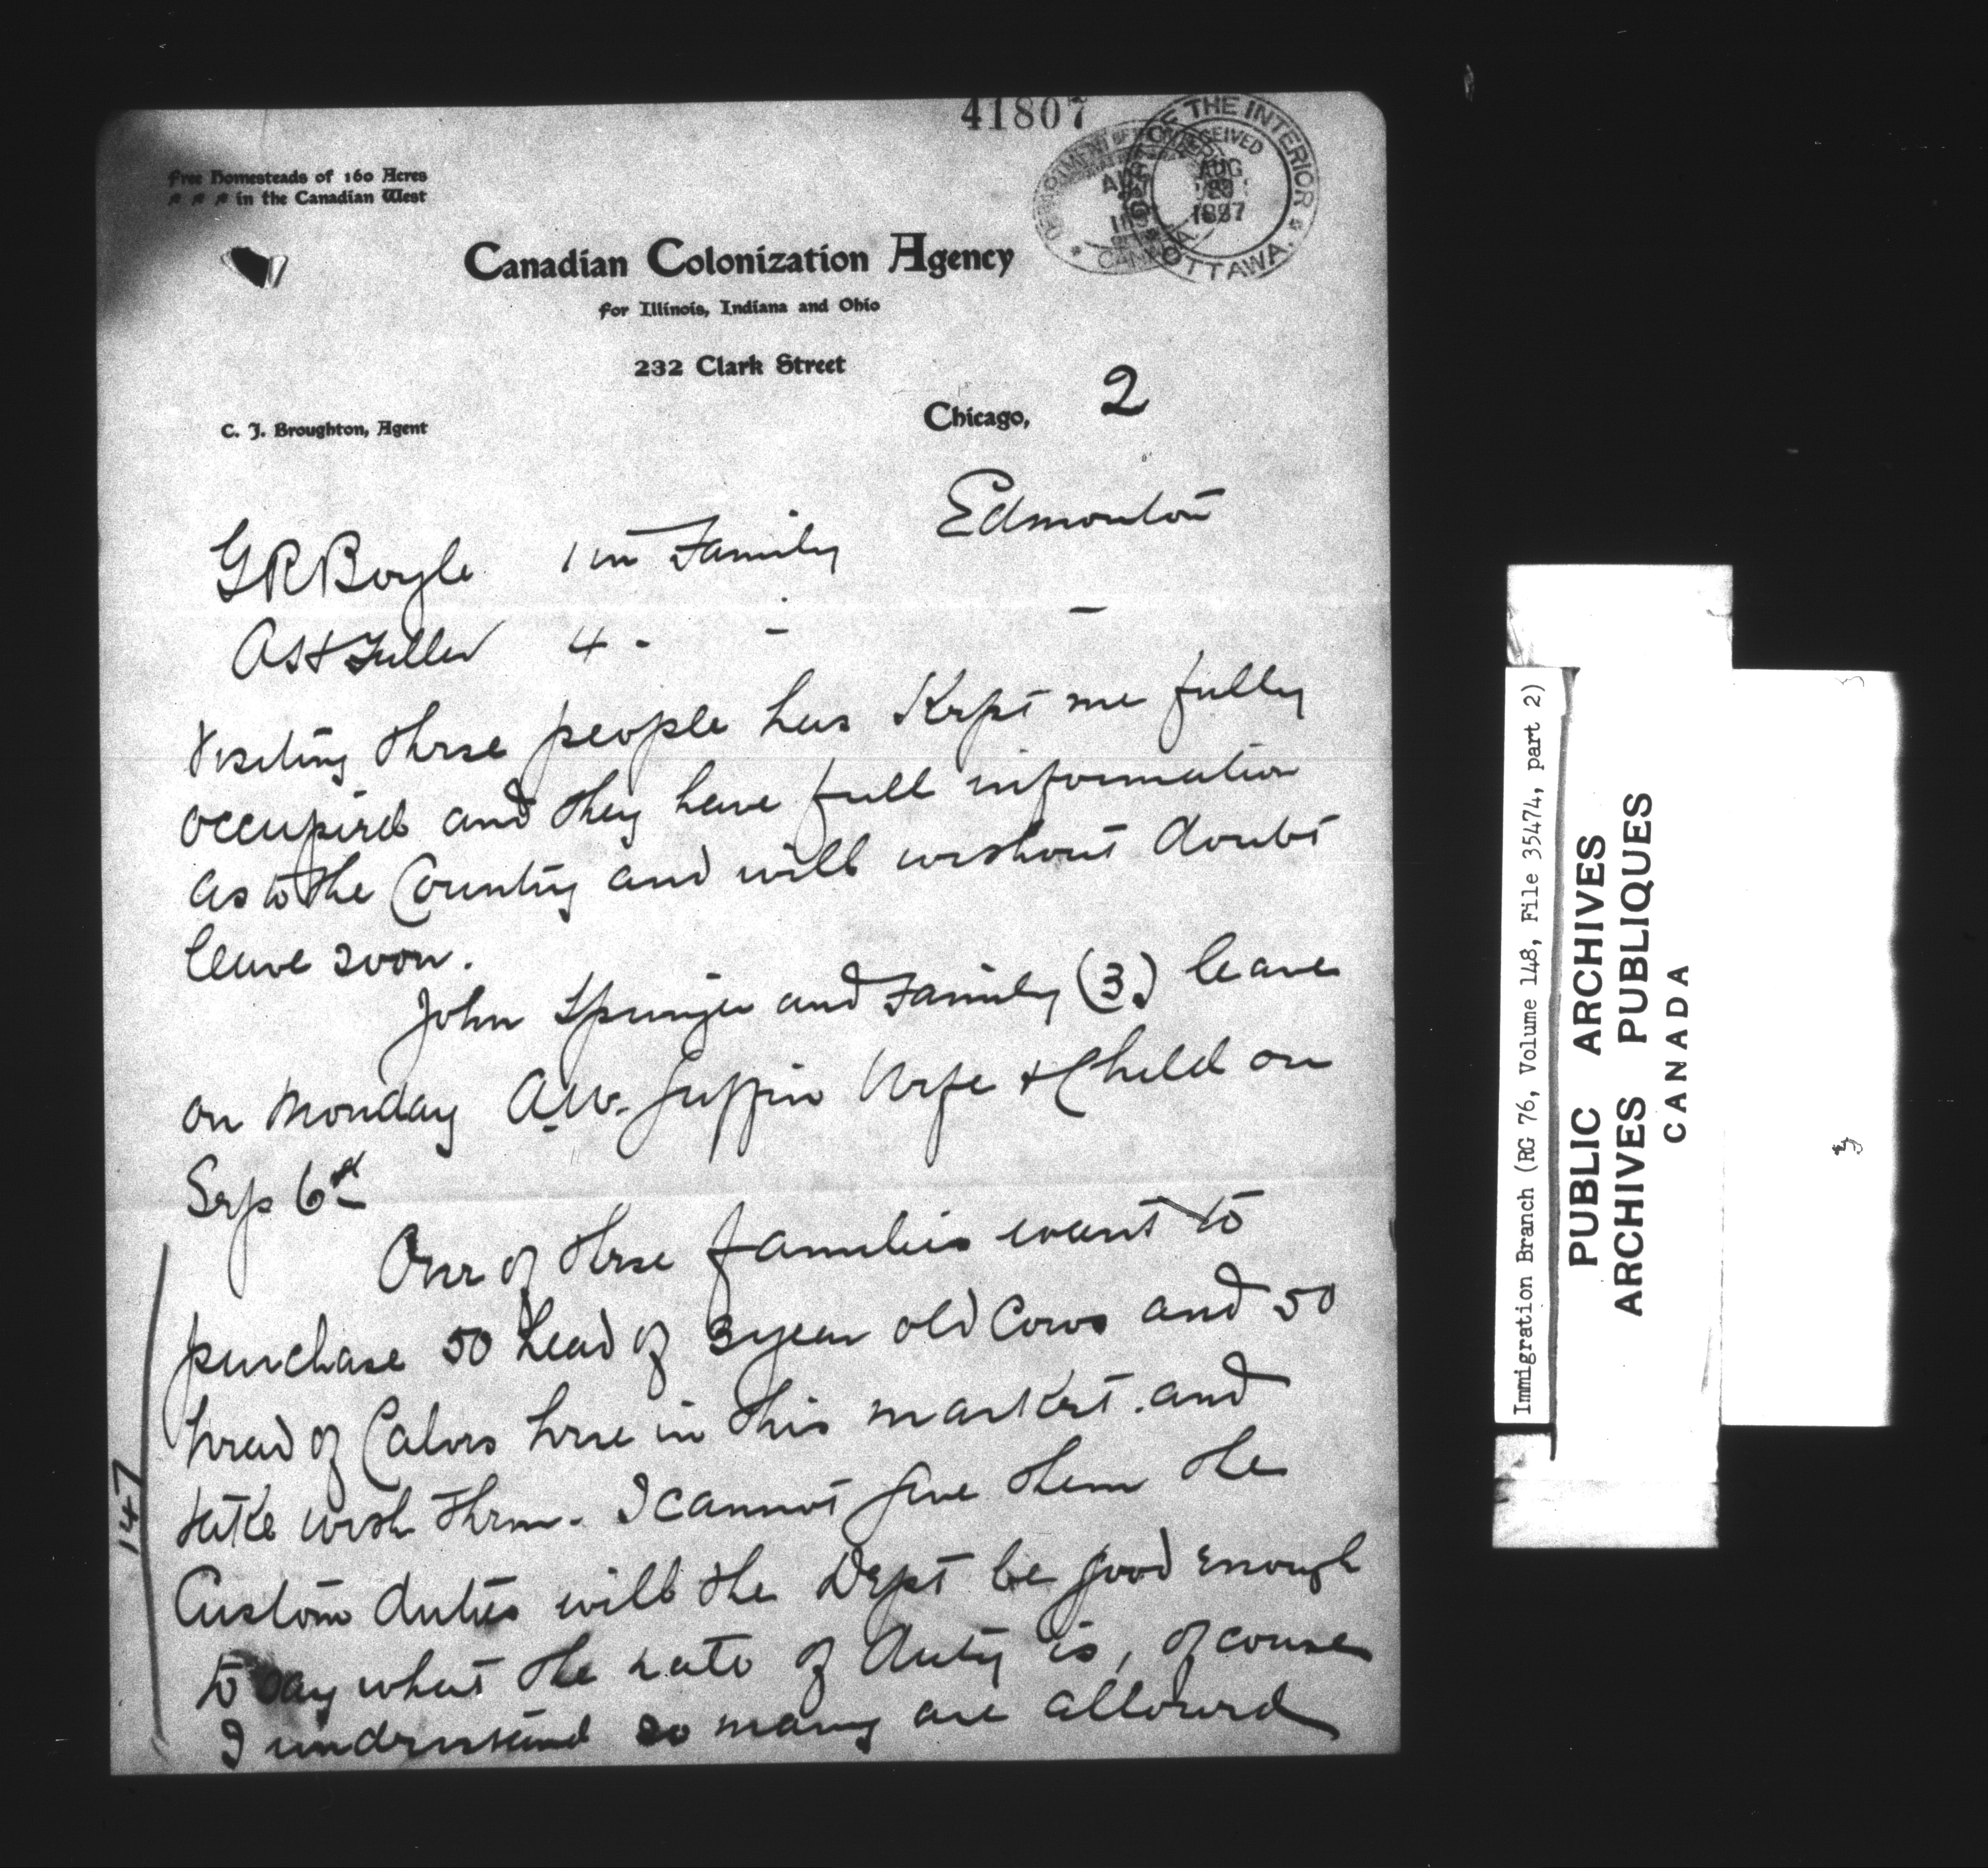 41807
Free Homesteads of 160 Acres
in the Canadian West
OF THE INTERIOR
RECEIVED
AUG
1897
OTTAWA.
Canadian Colonization Agency
for Illinois, Indiana and Ohio
232 Clark Street
Chicago, 2
C. J. Broughton, Agent
Edmonton
G R Boyle 1 in Family
Fuller 4 - - -
Visiting these people has Kept me fully
occupied and they have full information
as to the Country and will without doubt
leave soon.
John Springer and Family (3) leave
on Monday A.W. Giffin Wife & Child on
Sep 6th
One of these families want to
purchase 50 head of 3 year old Cows and 50
head of Calves here in this market. and
take with them. I cannot give them the
Custom duties will the Dept be good enough
to say what the rate of duty is, of course
I understand so many are allowed
147
Immigration Branch (RG 76, Volume 148, File 35474, part 2)
PUBLIC ARCHIVES
ARCHIVES PUBLIQUES
CANADA